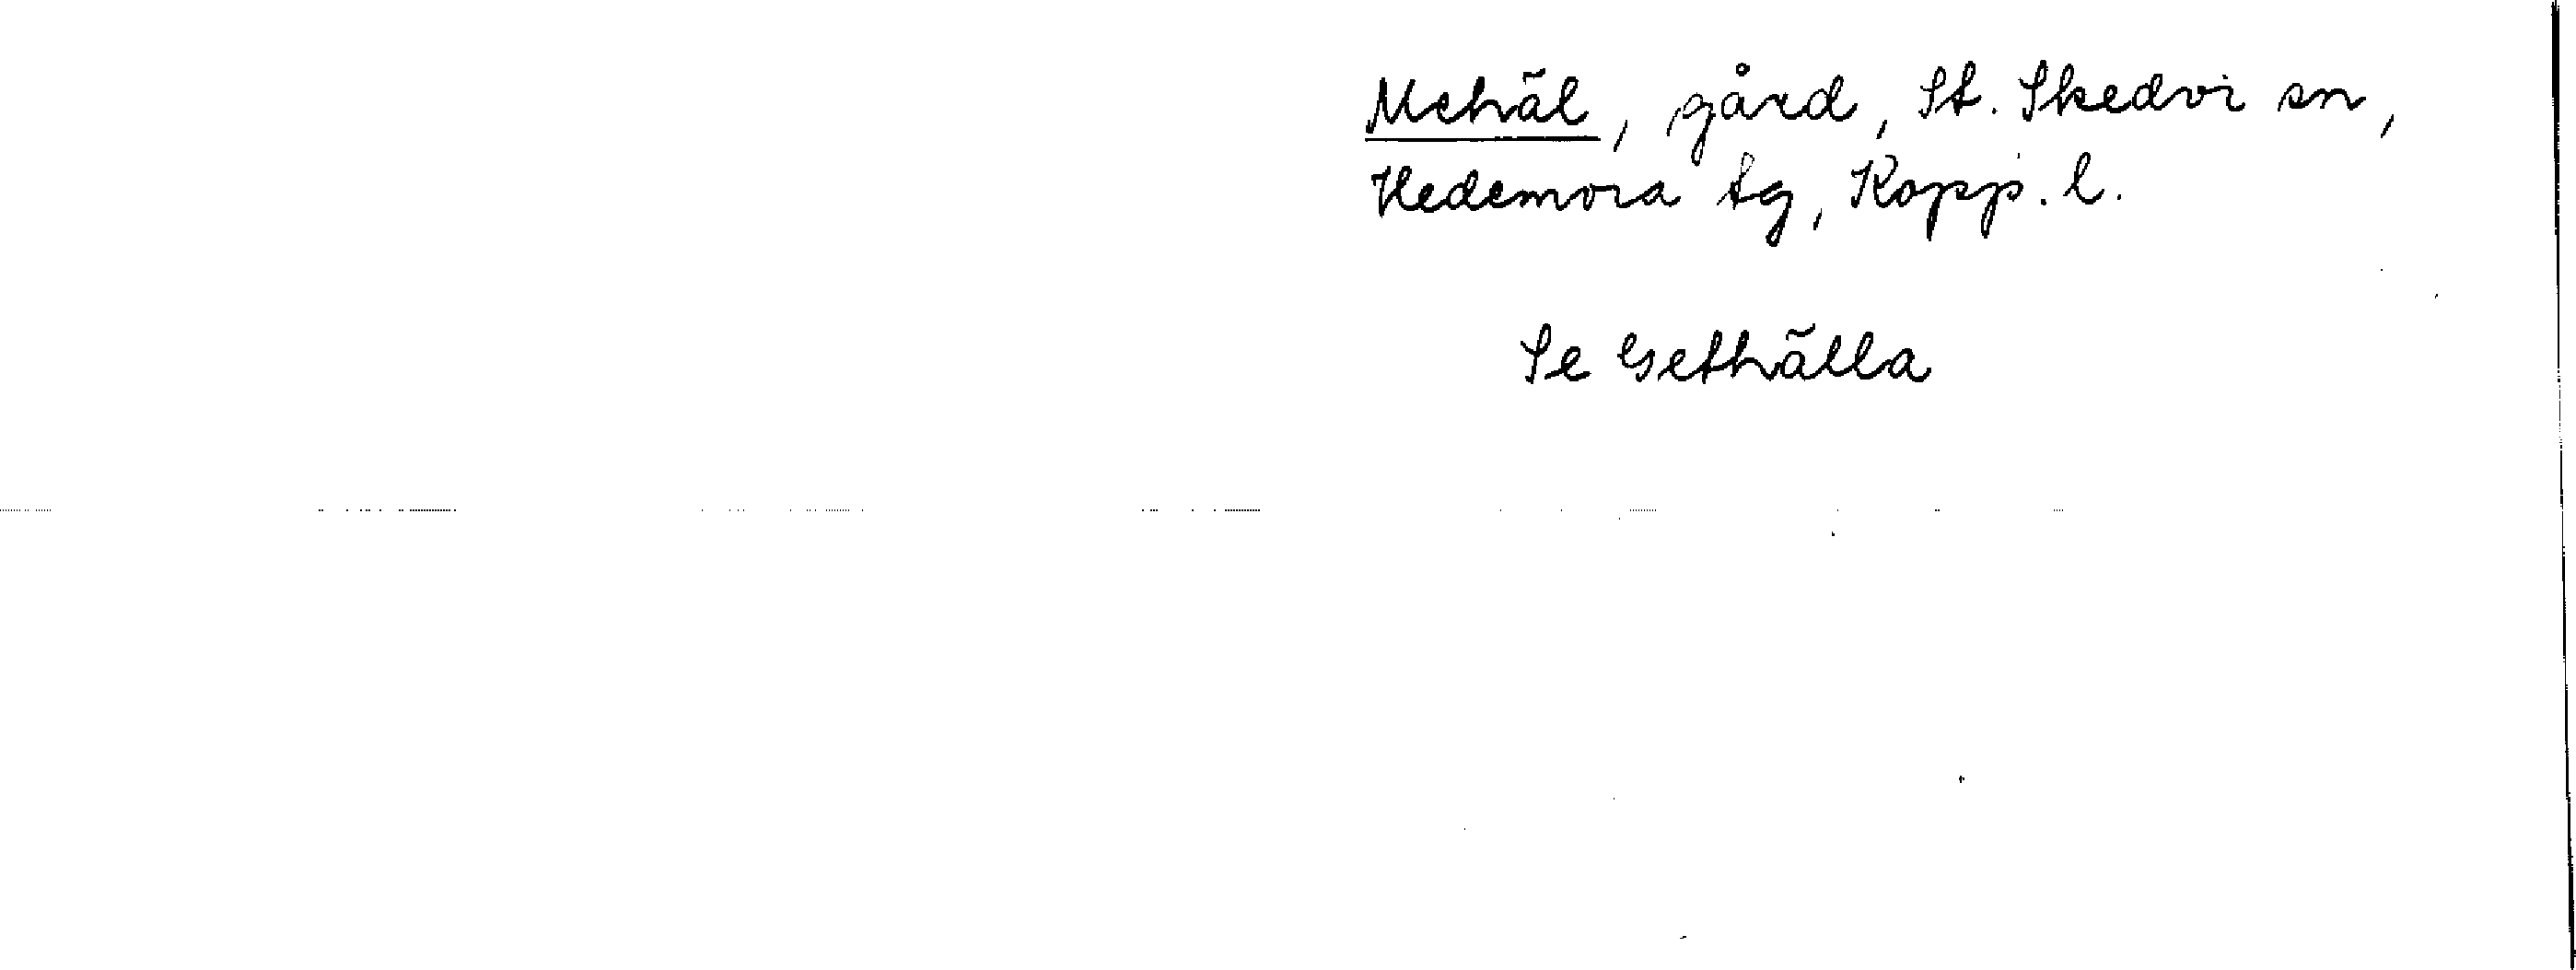 Mehäl, gård, St. Skedvi sn,
Hedemora tg, Kopp. l.
Se Gethälla